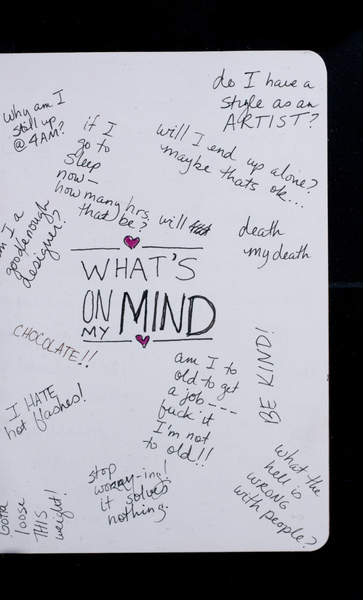 do I have a
style as an
ARTIST?
why am I
still up
@ 4AM?
if I
go to
sleep
now—
how many hrs
that be? will
will I end up alone?
maybe thats ok...
am I a
good enough
designer?
death
my death
WHAT'S
ON
MY MIND
CHOCOLATE!!
BE KIND!
am I to
old to get
a job----
fuck it
I'm not
to old!!
I HATE
hot flashes!
what the
hell is
WRONG
with people?
stop
worry-ing!
it solves
nothing.
Gotta
loose
THIS
weight!